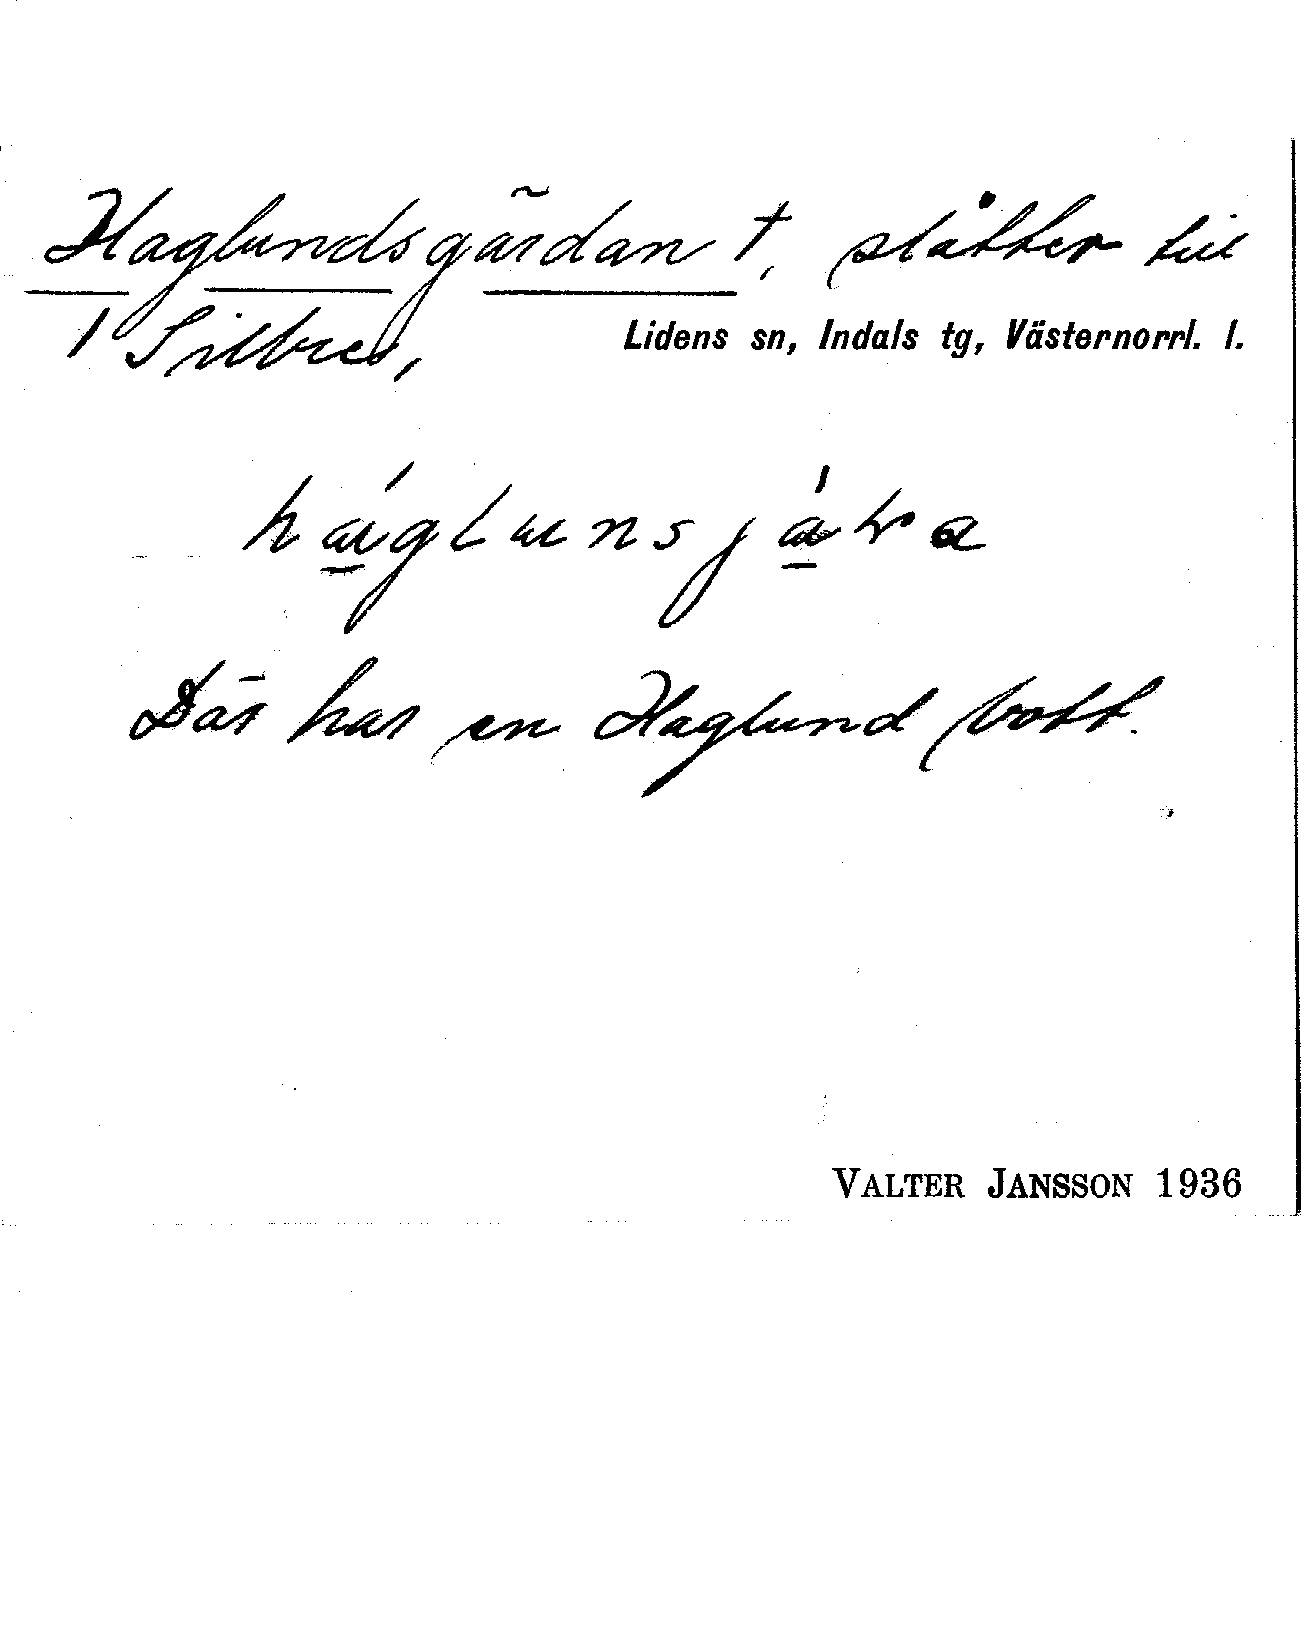 Haglundsgärdan †, slåtter till
1 Sillre,
Lidens sn, Indals tg, Västernorrl. l.
Där har en Haglund bott.
VALTER JANSSON 1936